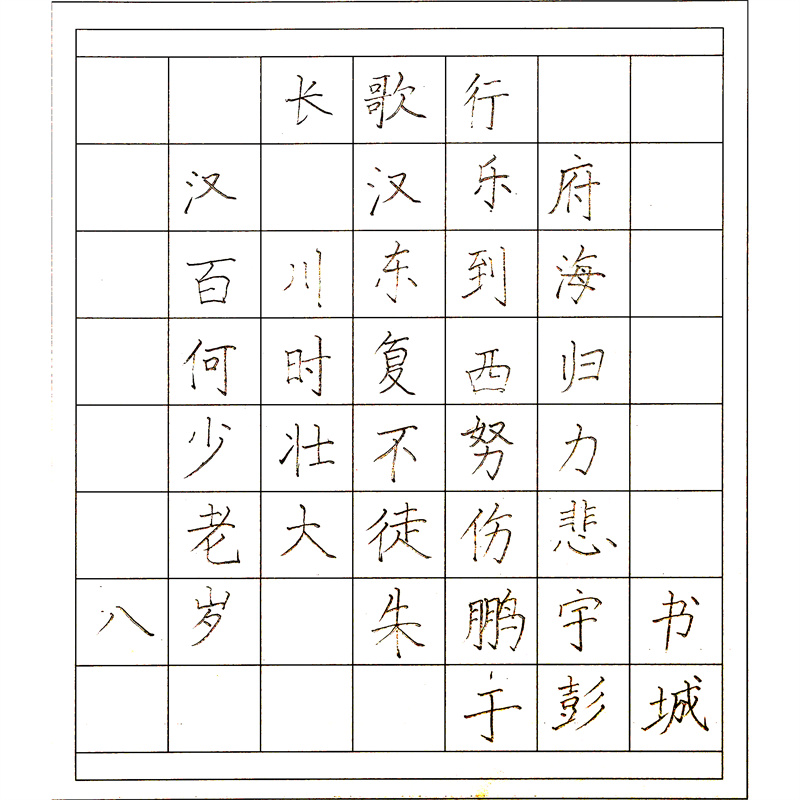 长歌行
汉 汉乐府
百川东到海
何时复西归
少壮不努力
老大徒伤悲
八岁 朱鹏宇书
于彭城